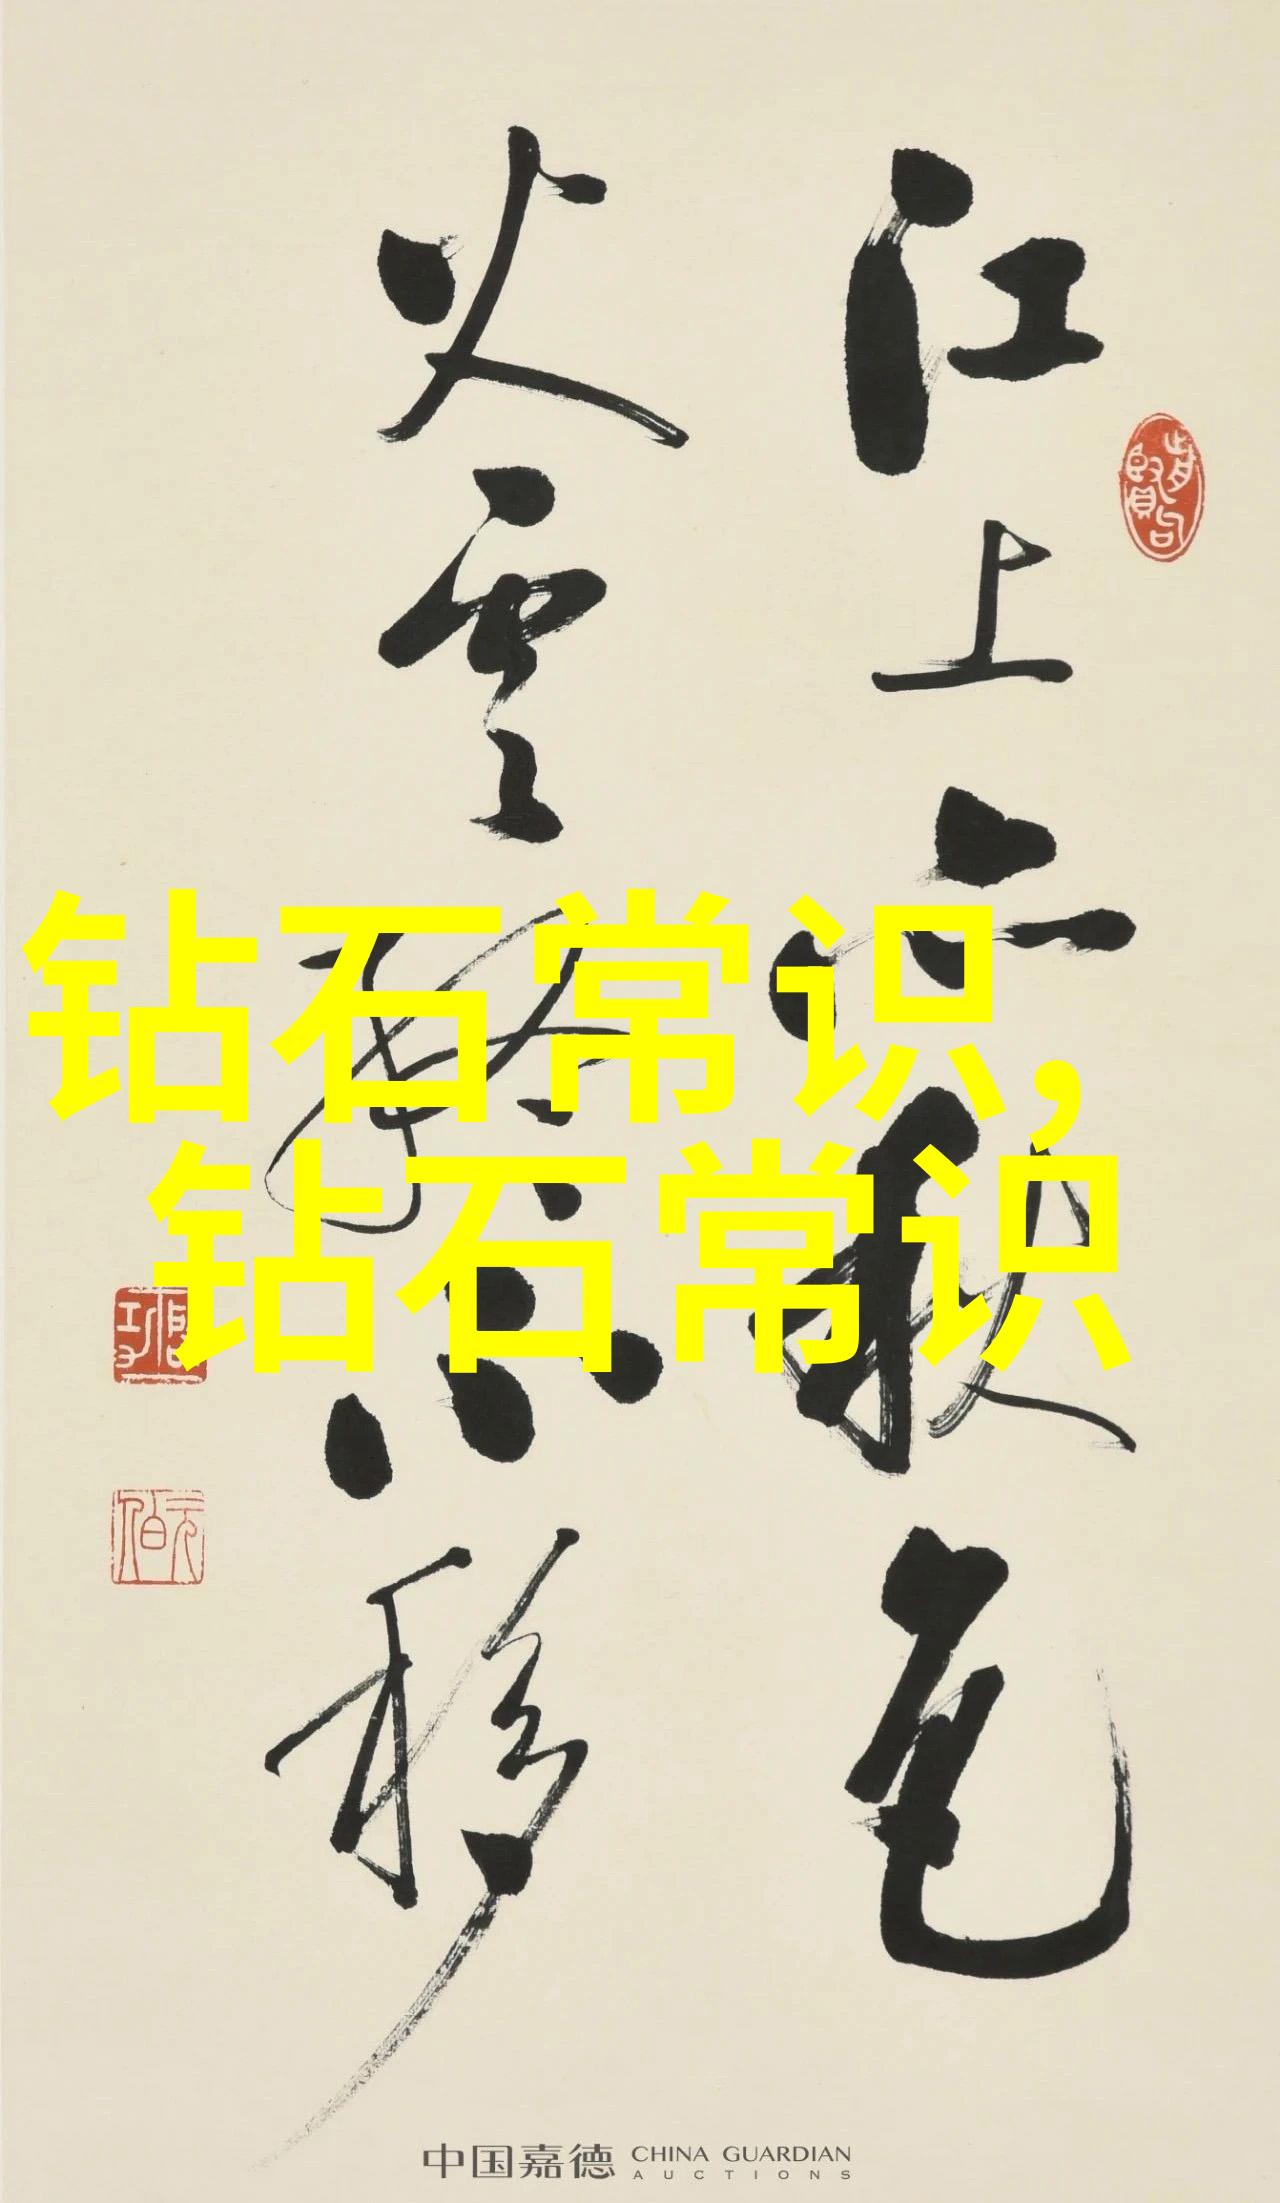 江上亦秋色
火雲終不移
钻石常识,
钻石常识
中国嘉德 CHINA GUARDIAN
AUCTIONS